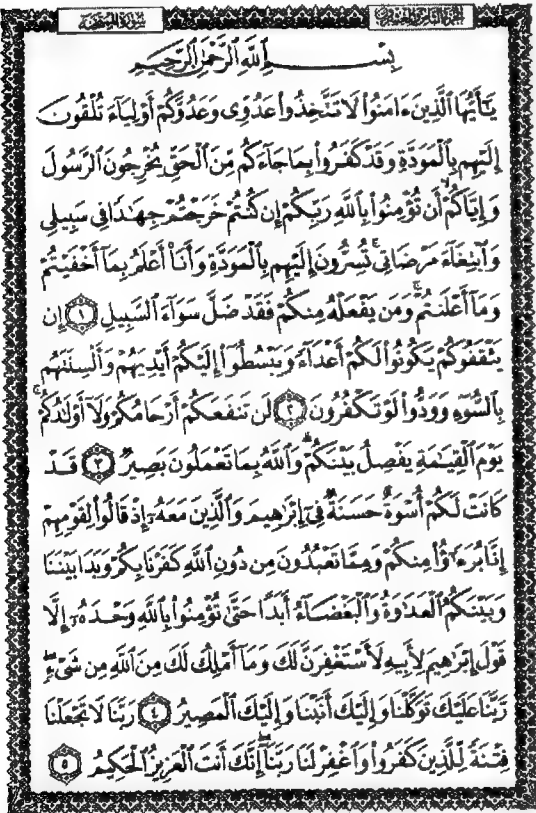 سورة الممتحنة
الجزء الثامن والعشرون
بِسْمِ ٱللَّهِ ٱلرَّحْمَٰنِ ٱلرَّحِيمِ
يَٰٓأَيُّهَا ٱلَّذِينَ ءَامَنُوا۟ لَا تَتَّخِذُوا۟ عَدُوِّى وَعَدُوَّكُمْ أَوْلِيَآءَ تُلْقُونَ
إِلَيْهِم بِٱلْمَوَدَّةِ وَقَدْ كَفَرُوا۟ بِمَا جَآءَكُم مِّنَ ٱلْحَقِّ يُخْرِجُونَ ٱلرَّسُولَ
وَإِيَّاكُمْ ۙ أَن تُؤْمِنُوا۟ بِٱللَّهِ رَبِّكُمْ إِن كُنتُمْ خَرَجْتُمْ جِهَٰدًا فِى سَبِيلِى
وَٱبْتِغَآءَ مَرْضَاتِى ۚ تُسِرُّونَ إِلَيْهِم بِٱلْمَوَدَّةِ وَأَنَا۠ أَعْلَمُ بِمَآ أَخْفَيْتُمْ
وَمَآ أَعْلَنتُمْ ۚ وَمَن يَفْعَلْهُ مِنكُمْ فَقَدْ ضَلَّ سَوَآءَ ٱلسَّبِيلِ ١ إِن
يَثْقَفُوكُمْ يَكُونُوا۟ لَكُمْ أَعْدَآءً وَيَبْسُطُوٓا۟ إِلَيْكُمْ أَيْدِيَهُمْ وَأَلْسِنَتَهُم
بِٱلسُّوٓءِ وَوَدُّوا۟ لَوْ تَكْفُرُونَ ٢ لَن تَنفَعَكُمْ أَرْحَامُكُمْ وَلَآ أَوْلَٰدُكُمْ ۚ
يَوْمَ ٱلْقِيَٰمَةِ يَفْصِلُ بَيْنَكُمْ ۚ وَٱللَّهُ بِمَا تَعْمَلُونَ بَصِيرٌ ٣ قَدْ
كَانَتْ لَكُمْ أُسْوَةٌ حَسَنَةٌ فِىٓ إِبْرَٰهِيمَ وَٱلَّذِينَ مَعَهُۥٓ إِذْ قَالُوا۟ لِقَوْمِهِمْ
إِنَّا بُرَءَٰٓؤُا۟ مِنكُمْ وَمِمَّا تَعْبُدُونَ مِن دُونِ ٱللَّهِ كَفَرْنَا بِكُمْ وَبَدَا بَيْنَنَا
وَبَيْنَكُمُ ٱلْعَدَٰوَةُ وَٱلْبَغْضَآءُ أَبَدًا حَتَّىٰ تُؤْمِنُوا۟ بِٱللَّهِ وَحْدَهُۥٓ إِلَّا
قَوْلَ إِبْرَٰهِيمَ لِأَبِيهِ لَأَسْتَغْفِرَنَّ لَكَ وَمَآ أَمْلِكُ لَكَ مِنَ ٱللَّهِ مِن شَىْءٍ ۖ
رَّبَّنَا عَلَيْكَ تَوَكَّلْنَا وَإِلَيْكَ أَنَبْنَا وَإِلَيْكَ ٱلْمَصِيرُ ٤ رَبَّنَا لَا تَجْعَلْنَا
فِتْنَةً لِّلَّذِينَ كَفَرُوا۟ وَٱغْفِرْ لَنَا رَبَّنَآ ۖ إِنَّكَ أَنتَ ٱلْعَزِيزُ ٱلْحَكِيمُ ٥